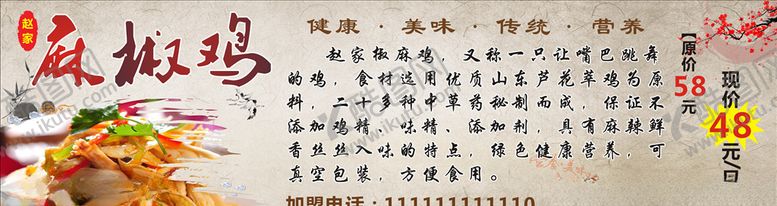 赵家
麻椒鸡
健康·美味·传统·营养
赵家椒麻鸡 又称一只让嘴巴跳舞
的鸡，食材选用优质山东芦花草鸡为原
料，二十多种中草药秘制而成，保证不
添加鸡精、味精、添加剂，具有麻辣鲜
香丝丝入味的特点，绿色健康营养，可
真空包装，方便食用。
加盟电话：111111111110
【原价58元
现价48元/口